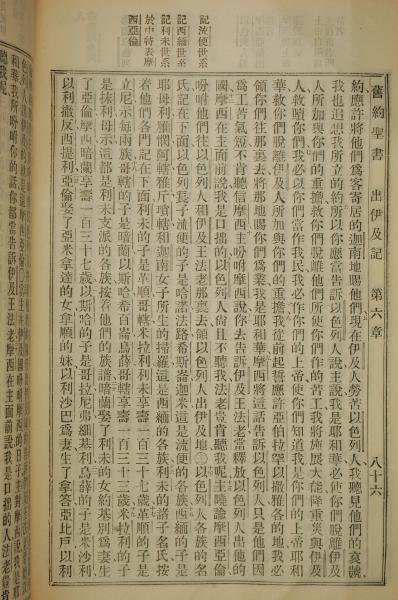 舊約聖書 出伊及記 第六章 八十六
記流便世系
記西緬世系
記利未世系
於中特表摩
西亞倫
約應許將他們爲客寄居的迦南地賜他們現在伊及人勞苦以色列人我聽見他們的哀號
我也追想我所立的約所以你應當告訴以色列人說主說我是耶和華必使你們脫離伊及
人所加與你們的重擔救你們脫離他們所使你們作的苦工我將施展大能降重災與伊及
人救贖你們我必以你們當作我民我必作你們的上帝使你們知道我是你們的上帝耶和
華救你們脫離伊及人所加與你們的重擔我從前起誓應許亞伯拉罕以撒雅各的地我必
領你們往那裏去將那地賜你們爲業我是耶和華摩西將這話告訴以色列人只是他們因
爲工苦氣短不肯聽信摩西主吩咐摩西說你去告訴伊及王法老當釋放以色列人出他的
國摩西在主面前說我是口拙的以色列人尙且不聽我法老豈肯聽我呢主曉諭摩西亞倫
吩咐他們往以色列人和伊及王法老那裏去領以色列人出伊及地〇以色列人各族的名
氏記在下面以色列長子流便的子是哈諾法路希斯崙迦米這是流便的各族西緬的子是
耶母利雅憫阿轄雅斤瑣轄和迦南女子所生的掃羅這是西緬的各族利未的諸子名氏按
着他們各門記在下面利未的子是革順哥轄米拉利利未享壽一百三十七歲革順的子是
立尼示每兩族哥轄的子是暗蘭以斯哈希百崙烏薛哥轄享壽一百三十三歲米拉利的子
是抹利母示這都是利未支派的各族按着他們的族譜暗蘭娶了利未的女約基別爲妻生
了亞倫摩西暗蘭享壽一百三十七歲以斯哈的子是哥拉尼弗細基利烏薛的子是米沙利
以利撒反西提利亞倫娶了亞米拿達的女拿順的妹以利沙巴爲妻生了拿答亞比戶以利